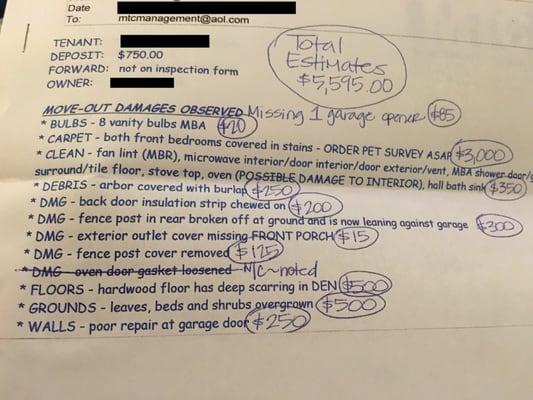 Date
To: mtcmanagement@aol.com
TENANT:
DEPOSIT: $750.00
FORWARD: not on inspection form
OWNER:
Total
Estimates
$5,595.00
MOVE-OUT DAMAGES OBSERVED Missing 1 garage opener $85
* BULBS - 8 vanity bulbs MBA $20
* CARPET - both front bedrooms covered in stains - ORDER PET SURVEY ASAP $3,000
* CLEAN - fan lint (MBR), microwave interior/door interior/door exterior/vent, MBA shower door/s
surround/tile floor, stove top, oven (POSSIBLE DAMAGE TO INTERIOR), hall bath sink $350
* DEBRIS - arbor covered with burlap $250
* DMG - back door insulation strip chewed on $200
* DMG - fence post in rear broken off at ground and is now leaning against garage $300
* DMG - exterior outlet cover missing FRONT PORCH $15
* DMG - fence post cover removed $125
* DMG - oven door gasket loosened N/C~noted
* FLOORS - hardwood floor has deep scarring in DEN $500
* GROUNDS - leaves, beds and shrubs overgrown $500
* WALLS - poor repair at garage door $250